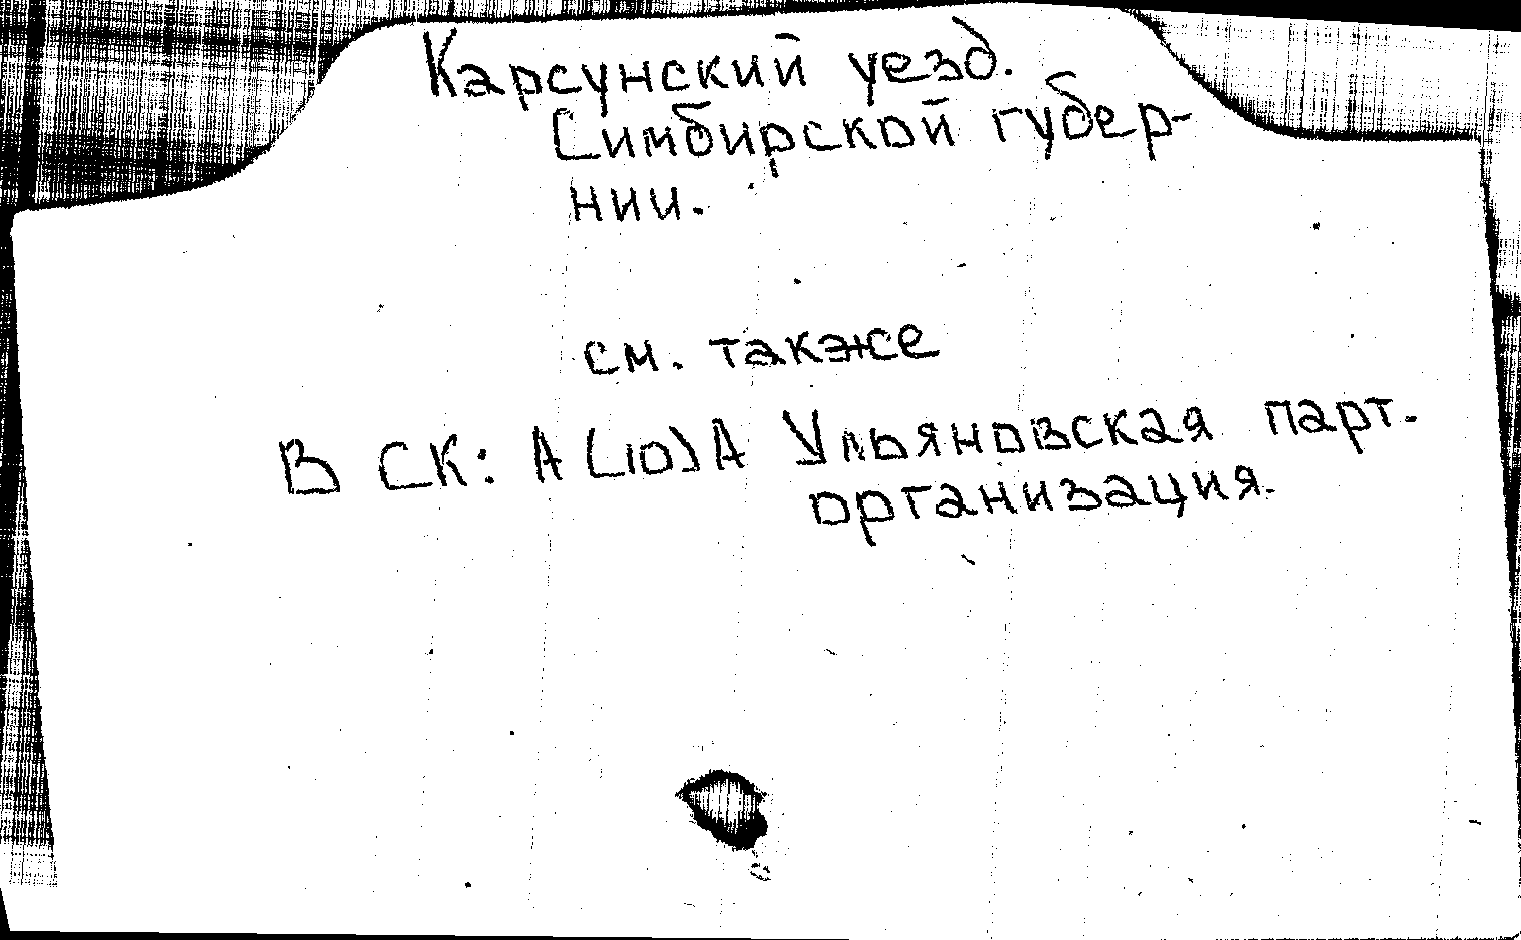 Карсунский уезд.
Симбирской губер-
нии.
см. также
В СК: А(10)А Ульяновская парт.
организация.